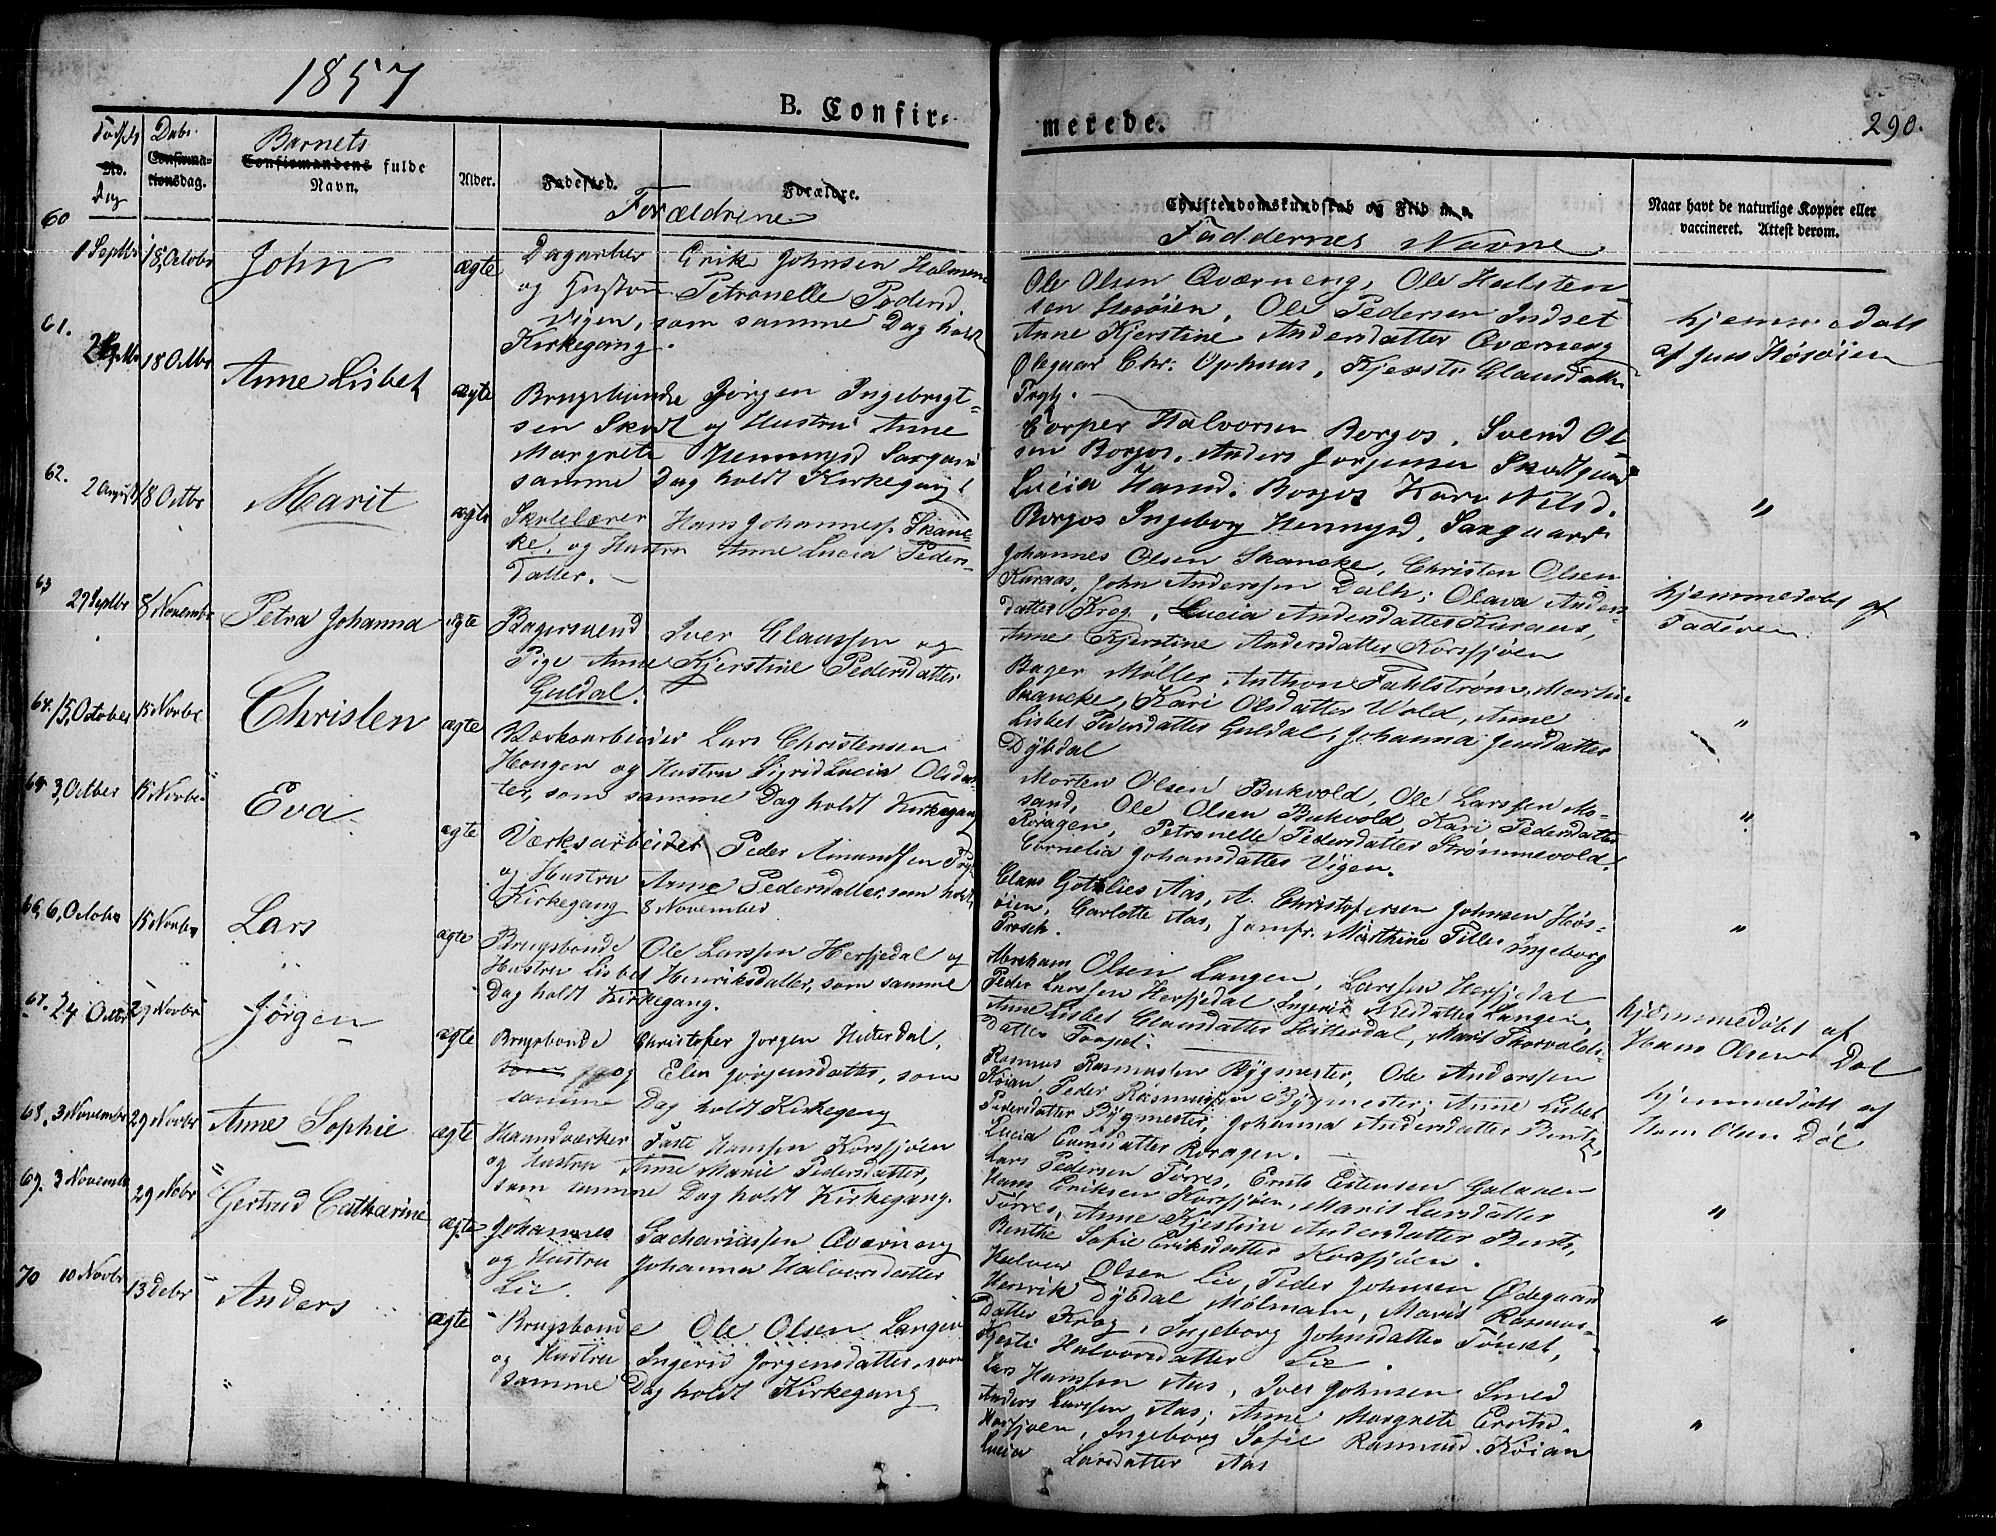 1857
B. Confir-
merede.
290.
Fødsels
No.
Dag
Daabs
Confirma-
tionsdag.
Barnets
Confirmandens fulde
Navn.
Alder.
Fødested.
Forældre.
Forældrene
Christendomskundskab og Flid m.a
Faddernes Navne
Naar havt de naturlige Kopper eller
vaccineret. Attest derom.
60
1 Septbr
18 Octobr
John
ægte
Dagarber Erik Johnsen Holmen
og Hustru Petronelle Pedersd
Vigen, som samme Dag holdt
Kirkegang.
Ole Olsen Qværneng, Ole Hulsten-
sen Høsøien, Ole Pedersen Indset
Anne Kjerstine Andersdatter Qværneng
Olegaar Chr. Ophuus, Kjersti Clausdatter
Trygt.
hjemmedøbt
af Jens Høsøien
61.
18 Octbr
Anne Lisbet
ægte
Brugsbonde Jörgen Ingebrigt-
sen Skodt og Hustru Anne
Margrete Hemmingsd
samme Dag holdt Kirkegang.
Corper Halvorsen Borgos, Svend Ol-
sen Borgos, Anders Jorgensen
Lucia Hansd. Borgos Kari Nilsd.
Borgos Ingeborg
"
62.
2 August
18 Octbr
Marit
ægte
Skolelærer Hans Johanness. Skanc-
ke, og Hustru Anne Lucia Peders-
datter.
Johannes Olsen Skancke, Christen Olsen
Kuraas, John Anderssen Dalh; Olava Anders-
datter Krog, Lucia Andersdatter Kuraas,
Anne Kjerstine Andersdatter Korssjøen
63
27 Septbr
8 Novembr
Petra Johanna
ægte
Bagersvend Iver Claussen og
Pige Anne Kjerstine Pedersdatter
Guldal.
Bager Møller, Anthon Fahlstrøm, Marthe
Skancke, Kari Olsdatter Wold, Anne
Lisbet Pedersdatter Guldal, Johanna Jensdatter
Dybdal
hjemmedøbt af
Faderen
64.
15 October
15 Novbr
Christen
ægte
Værksarbeider Lars Christensen
Hougen og Hustru Sigrid Lucia Olsdat-
ter, som samme Dag holdt Kirkegang
Morten Olsen Bukvold, Ole Larssen Mo-
sand, Ole Olsen Bukvold, Kari Pedersdatter
Røragen, Petronelle Pedersdatter Strømmevold,
Cornelia Johansdatter Vigen.
"
65.
3, Octber
15 Novbr
Eva
ægte
Værksarbeider Peder Amundsen
og Hustru Anne Pedersdatter, som holdt
Kirkegang 8 November
Claus Gottlies Aas, A. Christofersen Johnsen Høs-
øien, Carlotte Aas, Jomfr. Marthine Tiller Ingeborg
Prosch.
"
66,
6, Octobr
15 Novbr
Lars
ægte
Brugsbonde Ole Larssen Hersjedal og
Hustru Lisbet Henriksdatter, som samme
Dag holdt Kirkegang.
Abraham Olsen Langen, Larssen Hersjedal
Peder Larssen Hersjedal Ingerid Nilsdatter Langen,
Anne Lisbet Clausdatter Hitterdal, Marit Thorvalds-
datter
"
67.
24 Octbr
29 Novbr
Jørgen
ægte
Brugsbonde Christofer Jorgen Hitterdal,
og Elen Jørgensdatter, som
samme Dag holdt Kirkegang
Rasmus Rasmussen Bygmester, Ole Anderssen
Køian, Peder Rasmussen Bygmester; Anne Lisbet
Pedersdatter Bygmester, Johanna Andersdatter Bentz,
Lucia Evensdatter Røragen.
hjemmedøbt af
Hans Olsen Dal
68.
3 Novembr
29 Novbr
Anne Sophie
ægte
Haandværker Faste Hanssen Korssjøen
og Hustru Anne Marie Pedersdatter,
som samme Dag holdt Kirkegang.
Lars Pedersen Tørres, Ernst Estensen Galaaen
Hans Eriksen Korssjøen, Marit Larsdatter
Tørres, Anne Kjestine Andersdatter Bents,
Benthe Sofie Eriksdatter Korssjøen.
hjemmedøbt af
Hans Olsen Døl
69.
3 Novembr
29 Nobr
Gertrud Catharine
ægte
Johannes Zachariassen Qværneng
og Hustru Johanna Halvorsdatter
Lie.
Halvor Olsen Lie, Peder Johnsen Ødegaard
Henrik Dybdal Mølmann, Marit Rasmus-
datter Krog, Ingeborg Johnsdatter Tønset,
Kjesti Halvorsdatter Lie.
"
70
10 Novbr
13 Debr
Anders
ægte
Brugsbonde Ole Olsen Langen
og Hustru Ingerid Jørgensdatter, som
samme Dag holdt Kirkegang
Lars Hanssen Aas, Iver Johnsen Smed
Anders Larssen Aas; Anne Margrete Ernstsd.
Korsjøen, Ingeborg Sofie Rasmusd. Køian
Lucia Larsdatter Aas
"
"